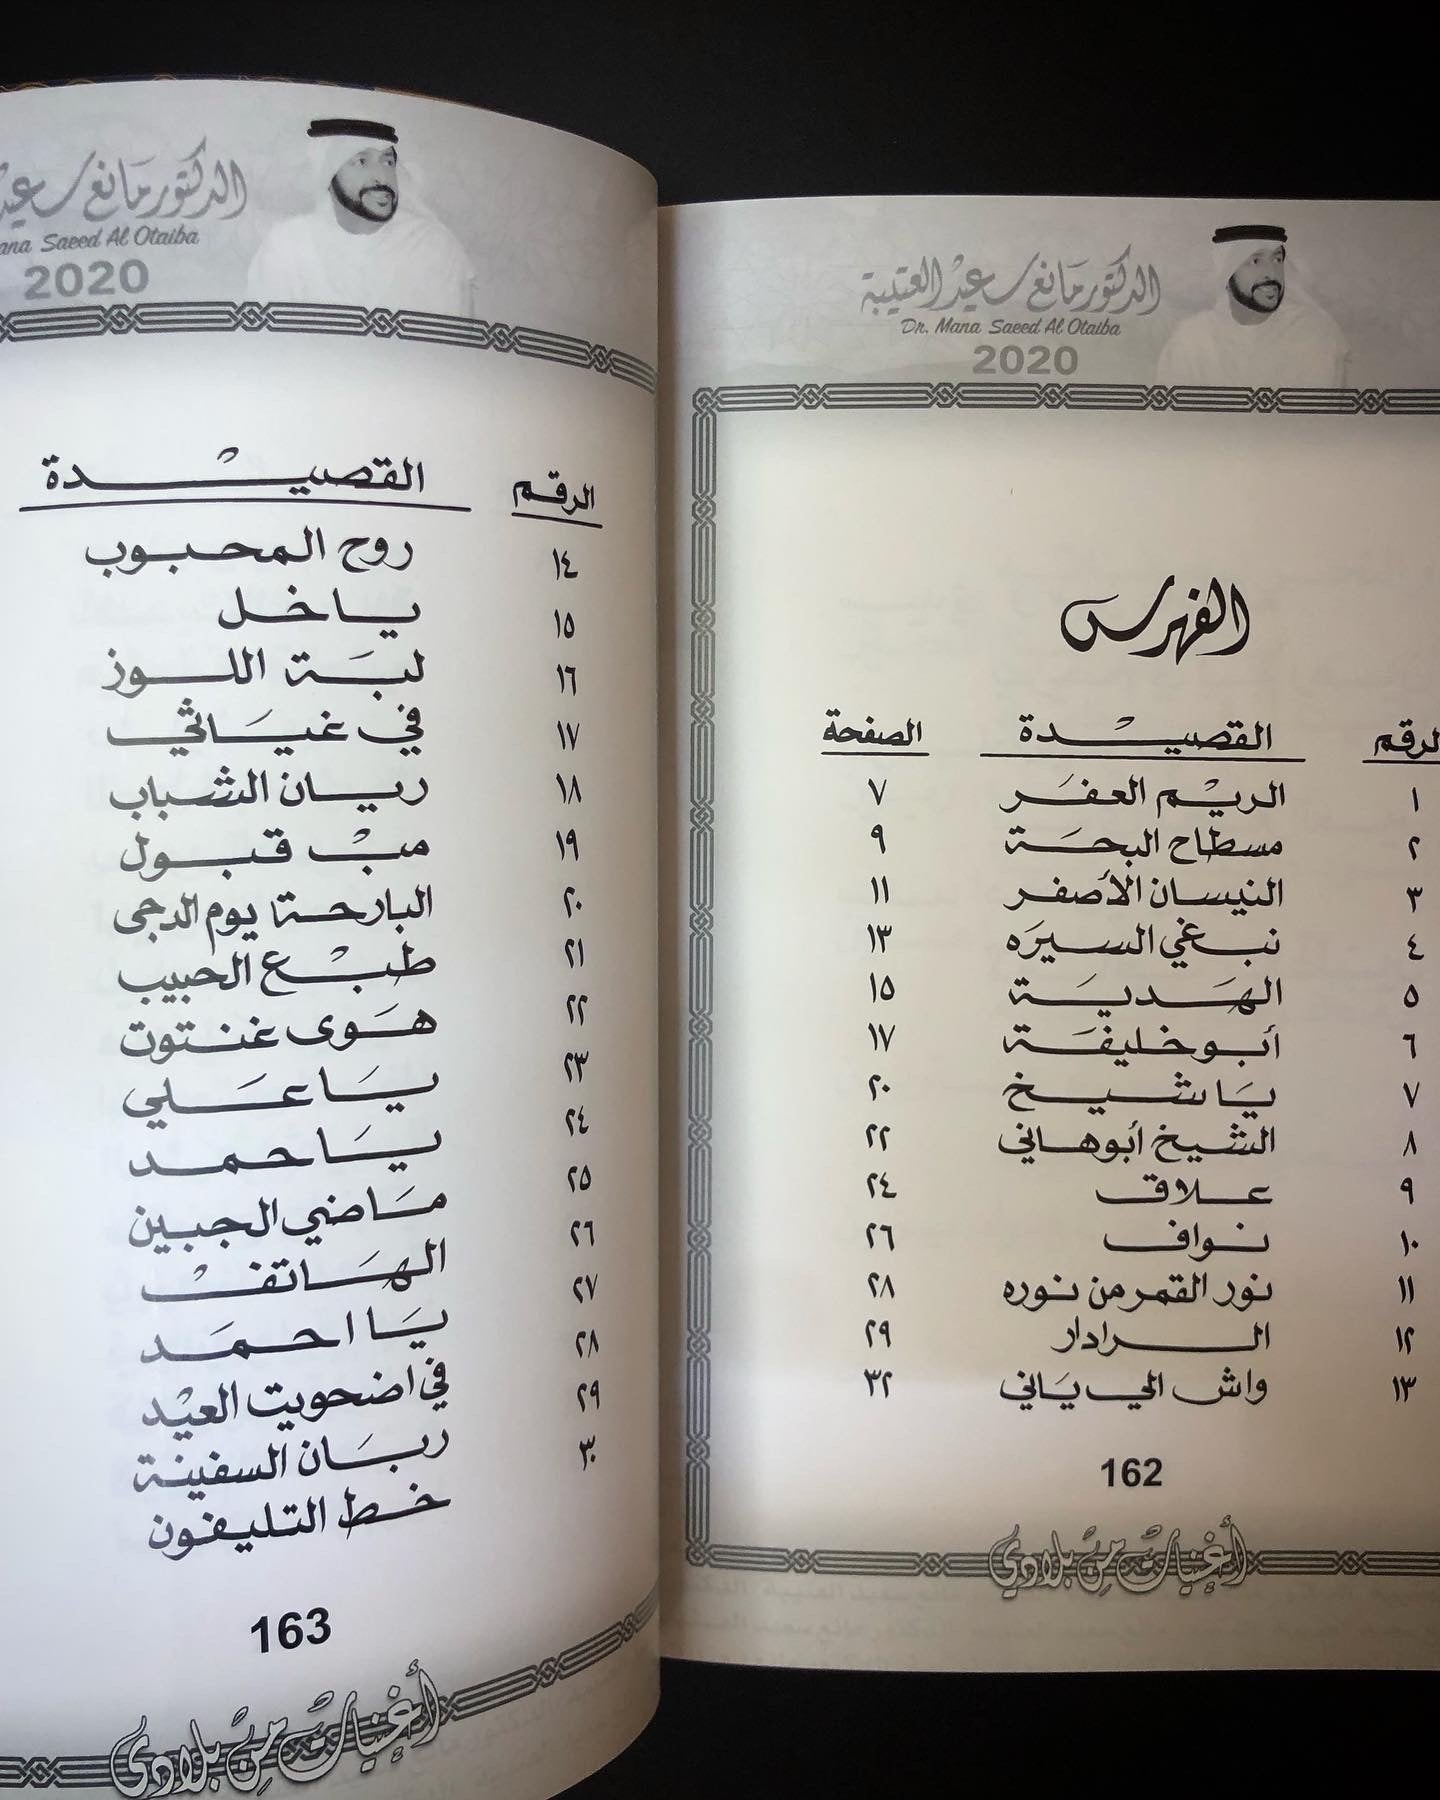 الدكتور مانع سعيد العتيبة
Dr. Mana Saeed Al Otaiba
2020
الفهرس
الرقم القصيدة الصفحة
١ الريم العفر ٧
٢ مسطاح البحة ٩
٣ النيسان الأصفر ١١
٤ نبغي السيره ١٣
٥ الهدية ١٥
٦ أبو خليفة ١٧
٧ يا شيخ ٢٠
٨ الشيخ أبوهاني ٢٢
٩ علاق ٢٤
١٠ نواف ٢٦
١١ نور القمر من نوره ٢٨
١٢ الرادار ٢٩
١٣ واش الي ياني ٣٢
162
أغنيات من بلادي
الدكتور مانع سعيد
Mana Saeed Al Otaiba
2020
الرقم القصيدة
١٤ روح المحبوب
١٥ يا خل
١٦ لبة اللوز
١٧ في غياثي
١٨ ريان الشباب
١٩ مب قبول
٢٠ البارحة يوم الدجى
٢١ طبع الحبيب
٢٢ هوى غنتوت
٢٣ يا علي
٢٤ يا حمد
٢٥ ماضي الجبين
٢٦ الهاتف
٢٧ يا احمد
٢٨ في اضحويت العيد
٢٩ ربان السفينة
٣٠ خط التليفون
163
أغنيات من بلادي